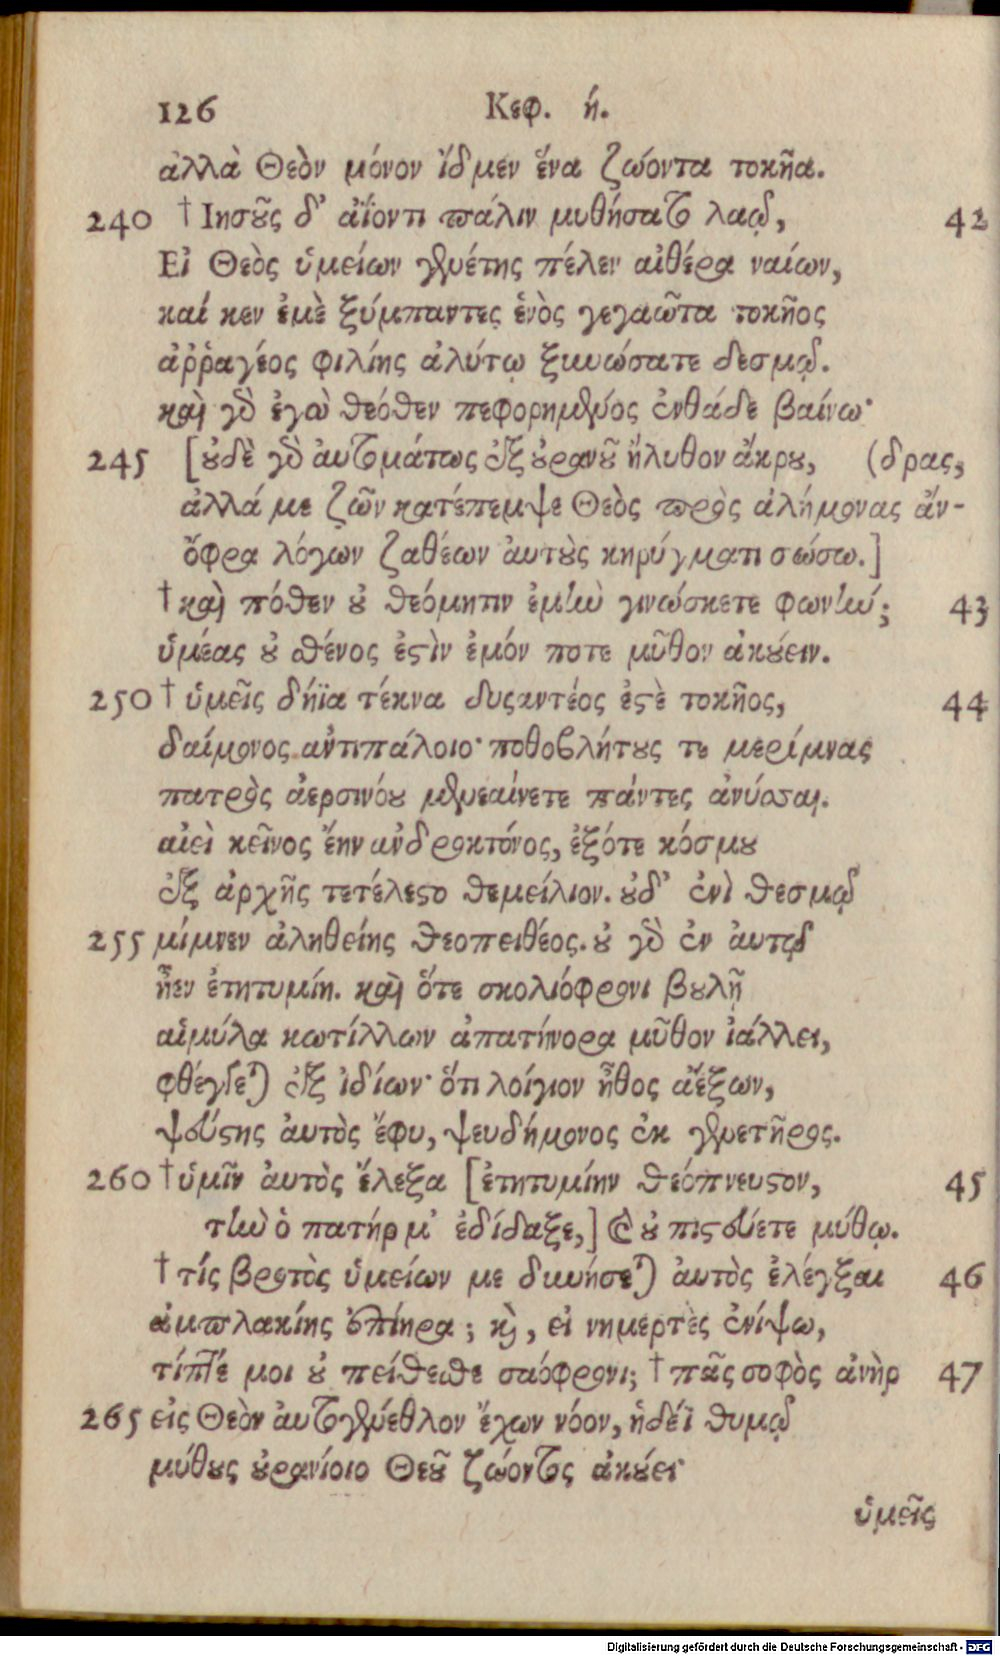 126 Κεφ. ή.
ἀλλὰ Θεὸν μόνον ἴδμεν ἕνα ζώοντα τοκῆα.
240 † Ιησοῦς δ' ἀΐοντι πάλιν μυθήσατο λαῷ, 42
Εἰ Θεὸς ὑμείων γενέτης πέλεν αἰθέρα ναίων,
καί κεν ἐμὲ ξύμπαντες ἑνὸς γεγαῶτα τοκῆος
ἀῤῥαγέος φιλίης ἀλύτῳ ξυνώσατε δεσμῷ.
καὶ γὸ ἐγὼ θεόθεν πεφορημένος ἐνθάδε βαίνω·
245 [οὐδὲ γὸ αὐτομάτως ἐξ οὐρανοῦ ἤλυθον ἄκρου, (δρας,
ἀλλά με ζῶν κατέπεμψε Θεὸς πρὸς ἀλήμονας ἄν-
ὄφρα λόγων ζαθέων αὐτοὺς κηρύγματι σώσω.]
† καὶ πόθεν οὐ θεόμητιν ἐμὴν γινώσκετε φωνήν; 43
ὑμέας οὐ σθένος ἐστὶν ἐμόν ποτε μῦθον ἀκούειν.
250 † ὑμεῖς δήϊα τέκνα δυσαντέος ἐστὲ τοκῆος, 44
δαίμονος ἀντιπάλοιο· ποθοβλήτους τε μερίμνας
πατρὸς ἀερσινόου μενεαίνετε πάντες ἀνύσσαι.
αἰεὶ κεῖνος ἔην ἀνδροκτόνος, ἐξότε κόσμου
ἐξ ἀρχῆς τετέλεστο θεμείλιον. οὐδ' ἐνὶ θεσμῷ
255 μίμνεν ἀληθείης θεοπειθέος. οὐ γὸ ἐν αὐτῷ
ἦεν ἐτητυμίη. καὶ ὅτε σκολιόφρονι βουλῇ
αἱμύλα κωτίλλων ἀπατήνορα μῦθον ἰάλλει,
φθέγγεται ἐξ ἰδίων· ὅτι λοίγιον ἦθος ἀέξων,
ψεύστης αὐτὸς ἔφυ, ψευδήμονος ἐκ γενετῆρος.
260 † ὑμῖν αὐτὸς ἔλεξα [ἐτητυμίην θεόπνευστον, 45
τὴν ὁ πατήρ μ' ἐδίδαξε,] καὶ οὐ πιστεύετε μύθῳ.
† τίς βροτὸς ὑμείων με δυνήσεται αὐτὸς ἐλέγξαι 46
ἀμπλακίης ἐπίηρα; καὶ, εἰ νημερτὲς ἐνίψω,
τίπτέ μοι οὐ πείθεσθε σαόφρονι; † πᾶς σοφὸς ἀνὴρ 47
265 εἰς Θεὸν αὐτογένεθλον ἔχων νόον, ἡδέϊ θυμῷ
μύθους οὐρανίοιο Θεοῦ ζώοντος ἀκούει·
ὑμεῖς
Digitalisierung gefördert durch die Deutsche Forschungsgemeinschaft - DFG